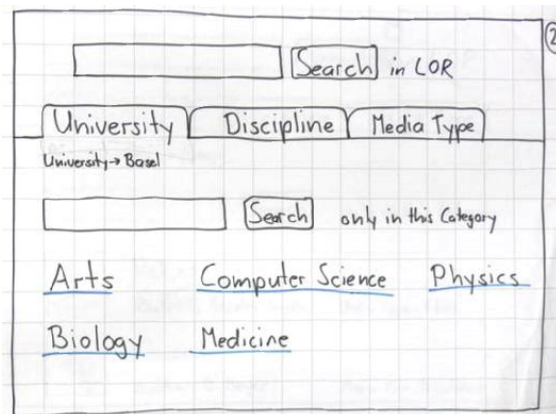 2
Search in LOR
University Discipline Media Type
University → Basel
Search only in this Category
Arts Computer Science Physics
Biology Medicine